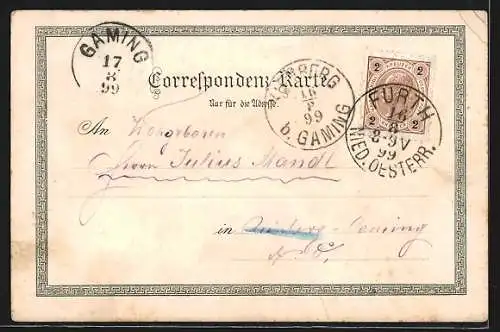 GAMING
17
8
99
Correspondenz-Karte
Nur für die Adresse.
BERG
16
8
99
b. GAMING
2 2
2 2
FURTH
16
8
8-9V
99
NIED. OESTERR.
An
Herrn Julius Mandl
in Gaming